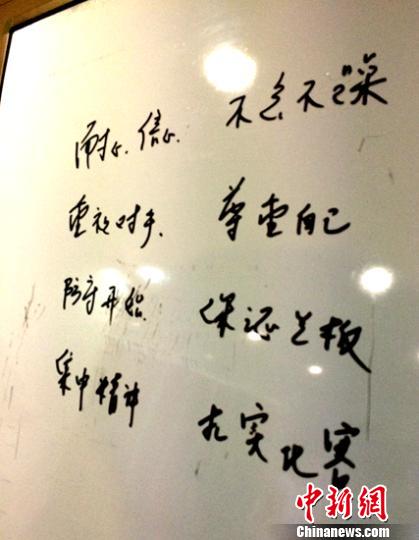 耐心 信心 不急不躁
重视对手 尊重自己
防守开始 保证兰板
集中精神 实比赛
中新网
www.chinanews.com